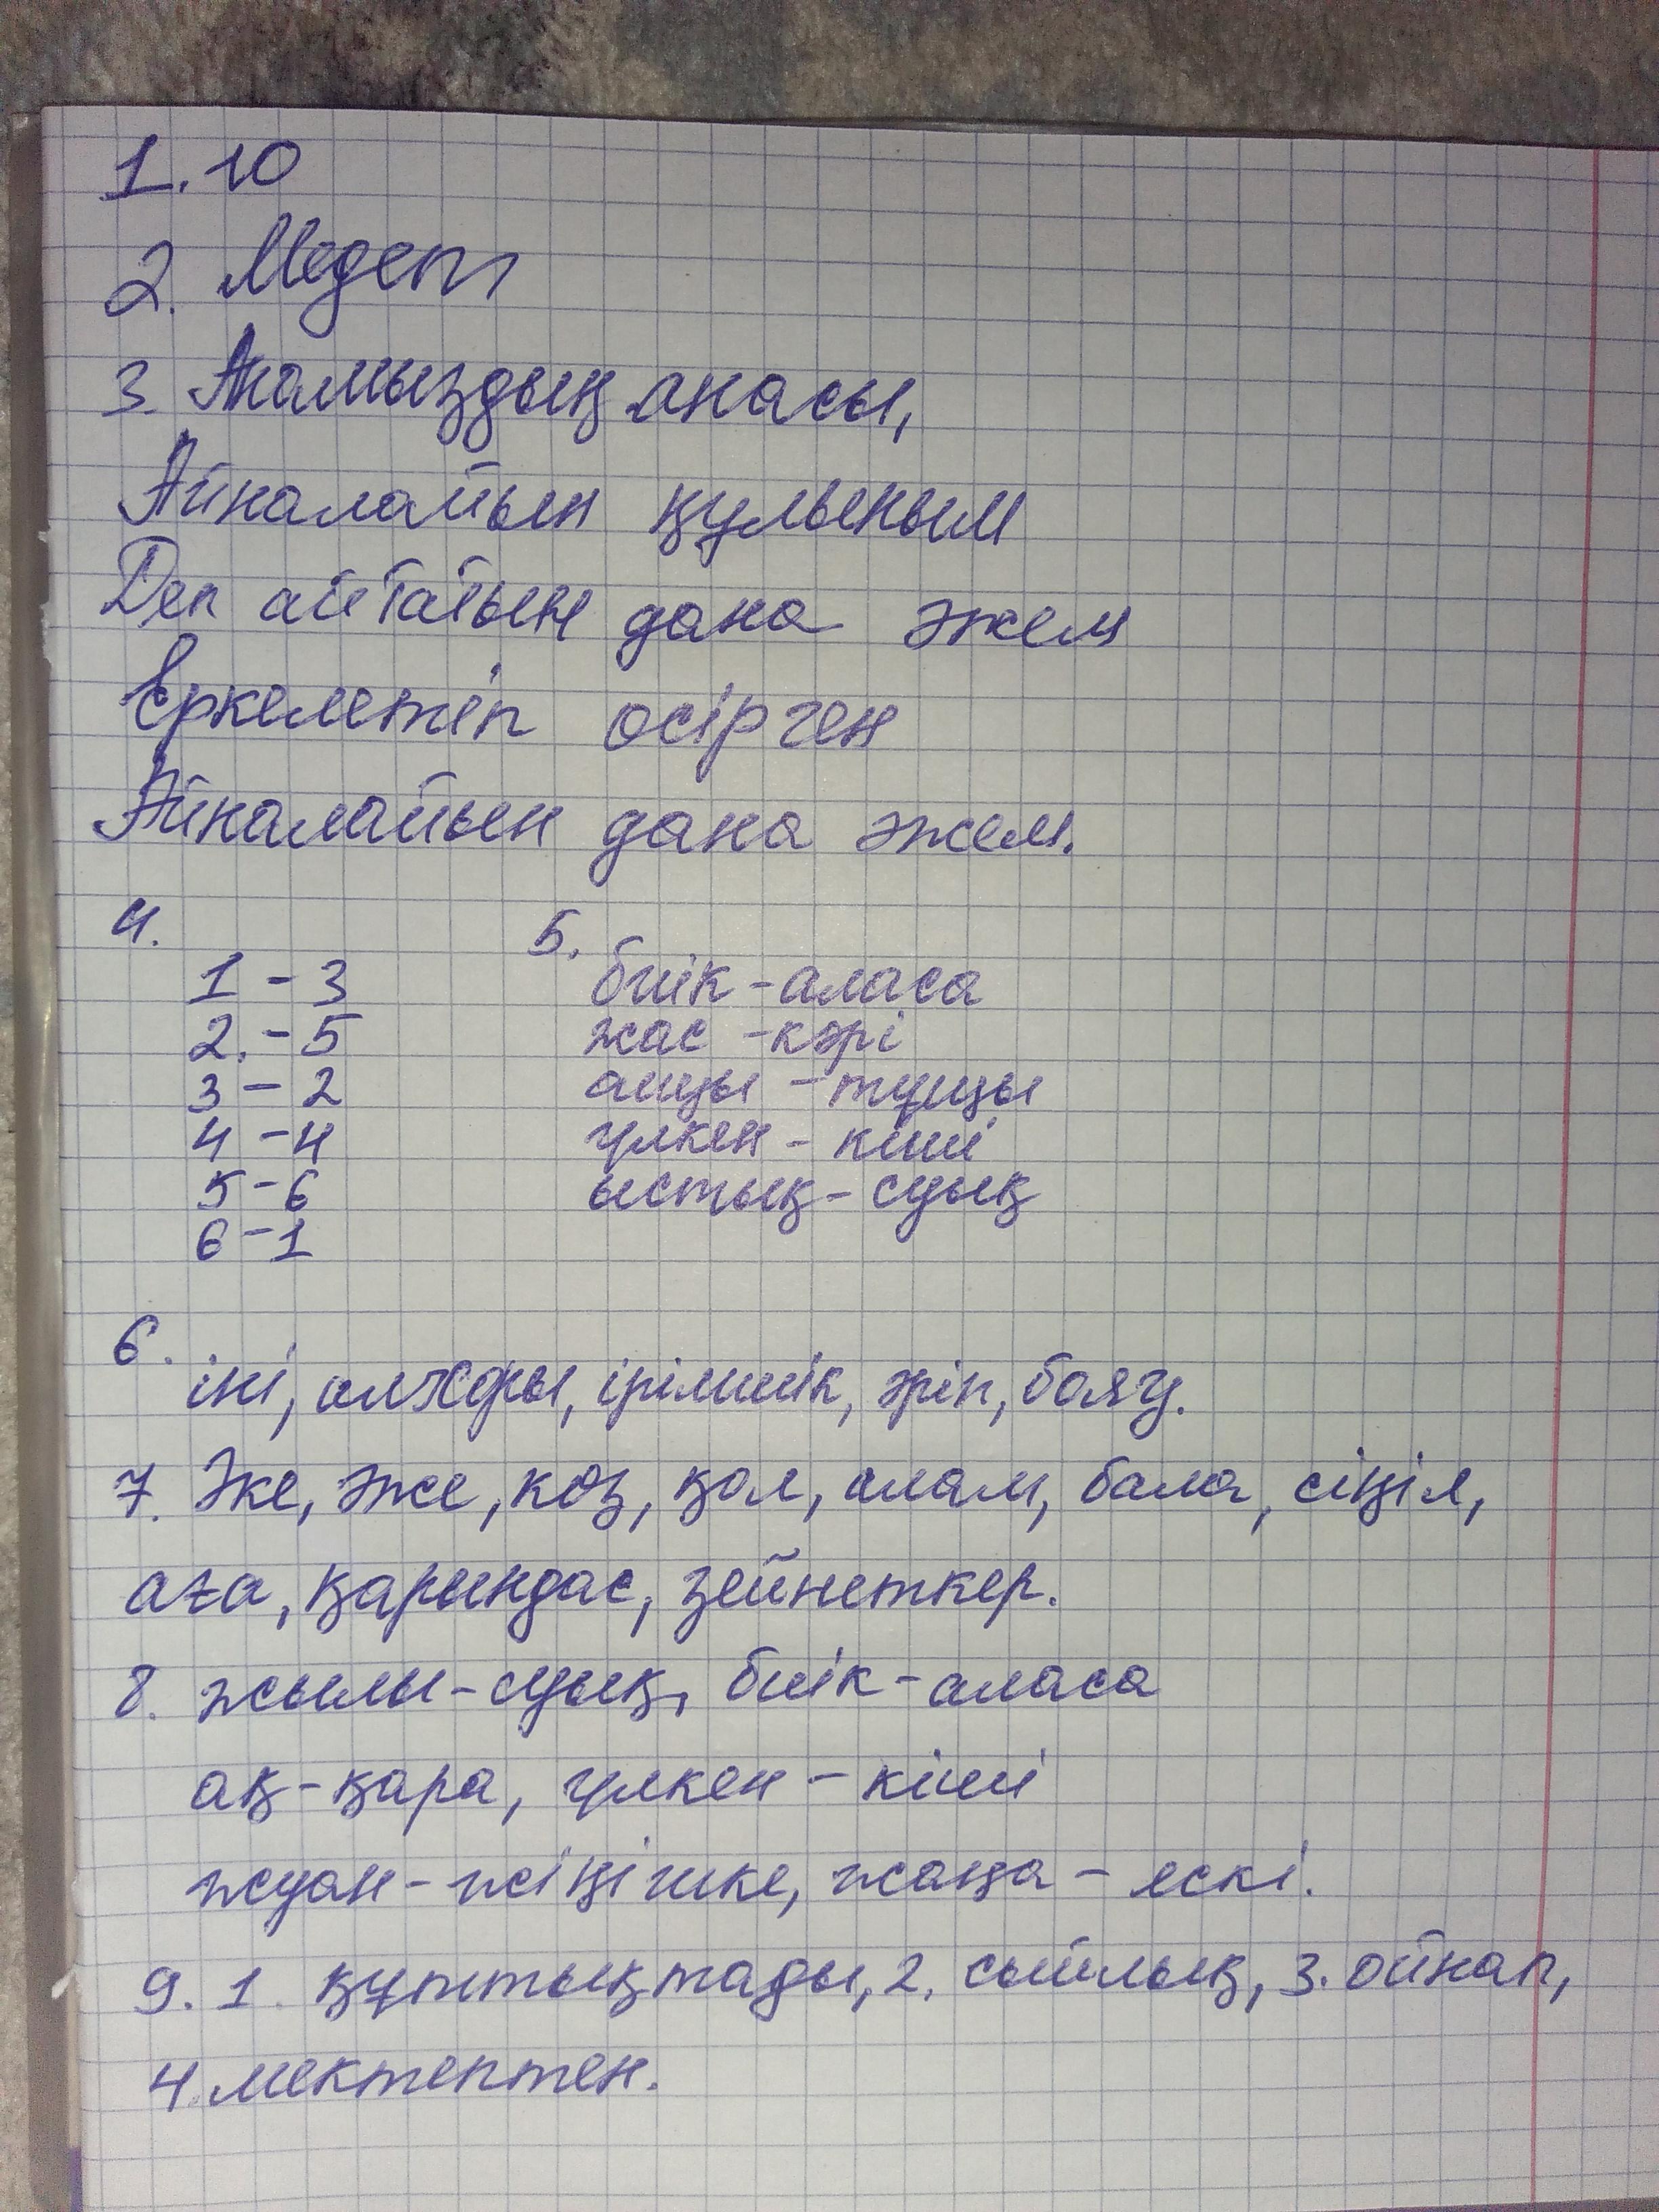 1. 10
2. Медет
3. Анамыздың анасы,
Айналайын құлыным
Деп айтатын дана әжем
Еркелетіп өсірген
Айналайын дана әжем.
4.
1 - 3
2. - 5
3 - 2
4 - 4
5 - 6
6 - 1
5.
биік - аласа
жас - кәрі
ащы - тұщы
үлкен - кіші
ыстық - суық
6.
іні, ірімшік, әріп, бояу.
7. Әке, әже, көз, қол, алам, бала, сіңіл,
аға, қарындас, зейнеткер.
8. жылы - суық, биік - аласа
ақ - қара, үлкен - кіші
жуан - жіңішке, жаңа - ескі.
9. 1. құттықтады, 2. сыйлық, 3. ойнап,
4. мектептен.